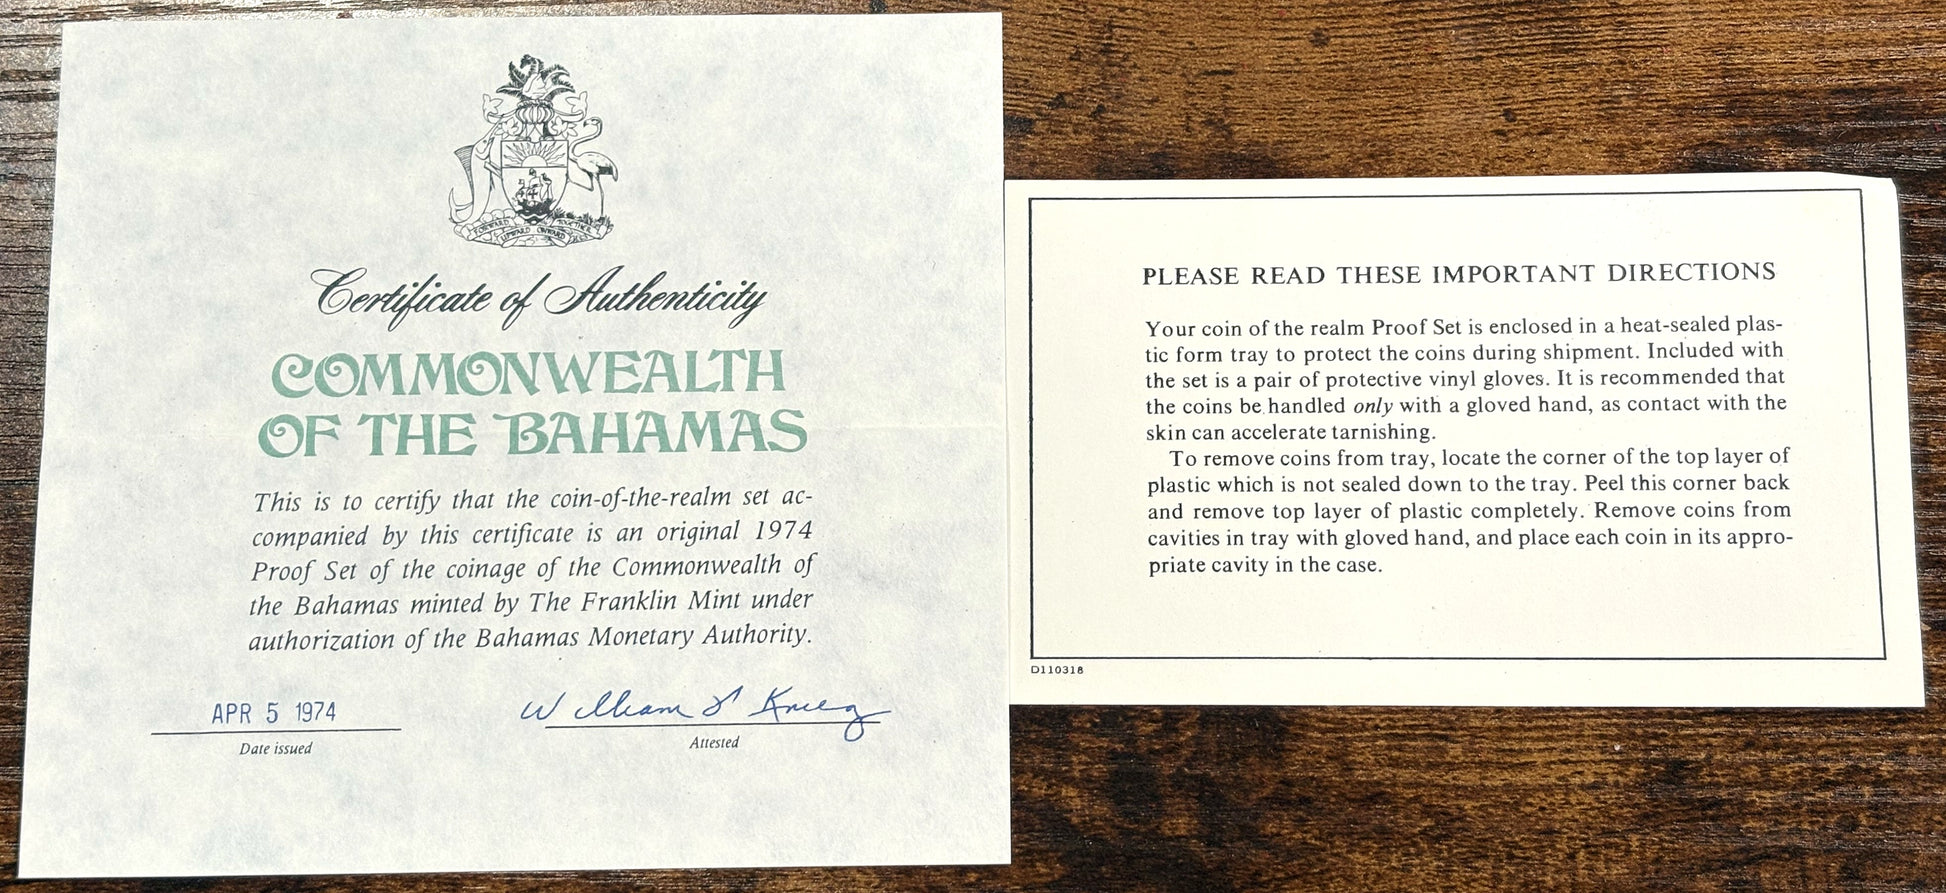 FORWARD UPWARD ONWARD TOGETHER
Certificate of Authenticity
COMMONWEALTH
OF THE BAHAMAS
This is to certify that the coin-of-the-realm set ac-
companied by this certificate is an original 1974
Proof Set of the coinage of the Commonwealth of
the Bahamas minted by The Franklin Mint under
authorization of the Bahamas Monetary Authority.
APR 5 1974
Date issued
William
Attested
PLEASE READ THESE IMPORTANT DIRECTIONS
Your coin of the realm Proof Set is enclosed in a heat-sealed plas-
tic form tray to protect the coins during shipment. Included with
the set is a pair of protective vinyl gloves. It is recommended that
the coins be handled only with a gloved hand, as contact with the
skin can accelerate tarnishing.
To remove coins from tray, locate the corner of the top layer of
plastic which is not sealed down to the tray. Peel this corner back
and remove top layer of plastic completely. Remove coins from
cavities in tray with gloved hand, and place each coin in its appro-
priate cavity in the case.
D110318